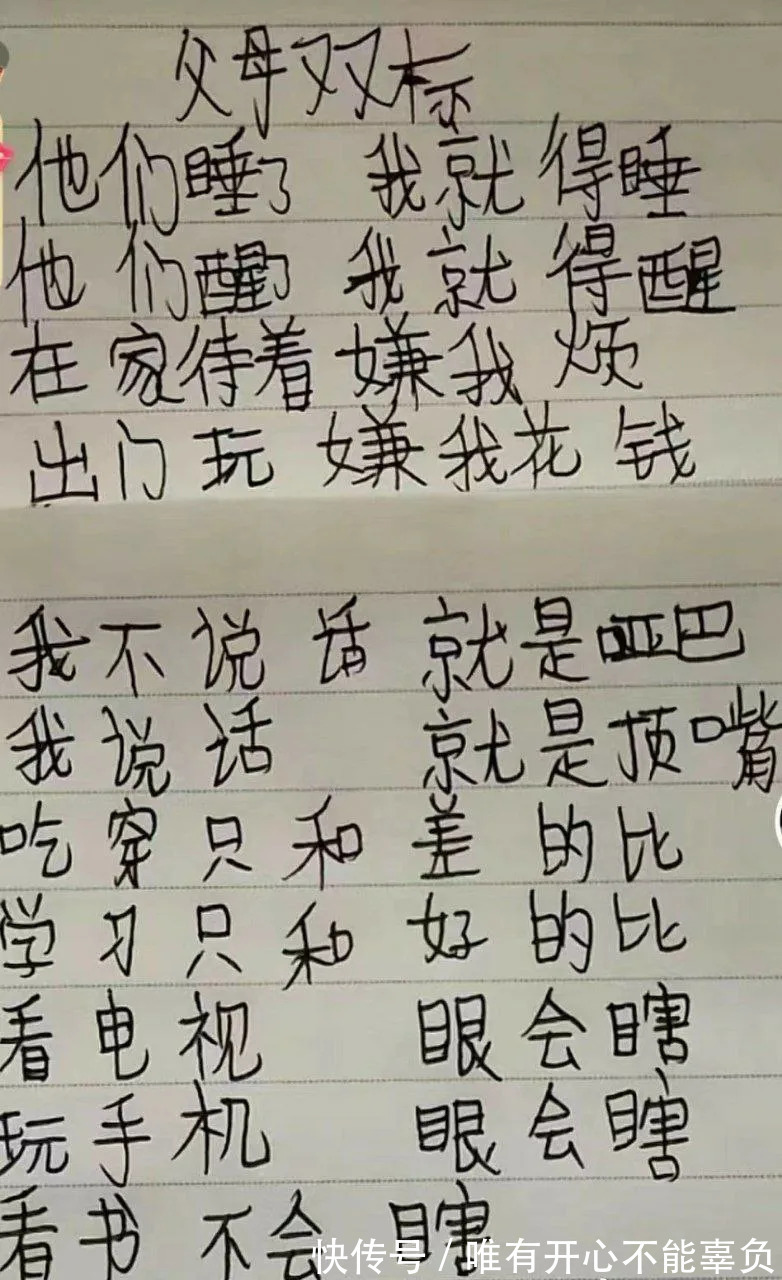 父母双标
他们睡了 我就得睡
他们醒了 我就得醒
在家待着 嫌我烦
出门玩 嫌我花钱
我不说话 就是哑巴
我说话 就是顶嘴
吃穿只和差的比
学习只和好的比
看电视 眼会瞎
玩手机 眼会瞎
看书不会瞎
快传号/唯有开心不能辜负